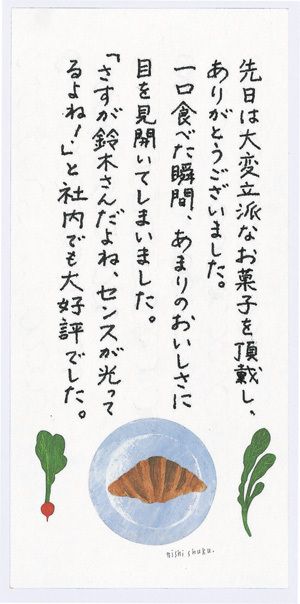 先日は大変立派なお菓子を頂戴し、
ありがとうございました。
一口食べた瞬間、あまりのおいしさに
目を見開いてしまいました。
「さすが鈴木さんだよね、センスが光って
るよね！」と社内でも大好評でした。
nishi shuku.